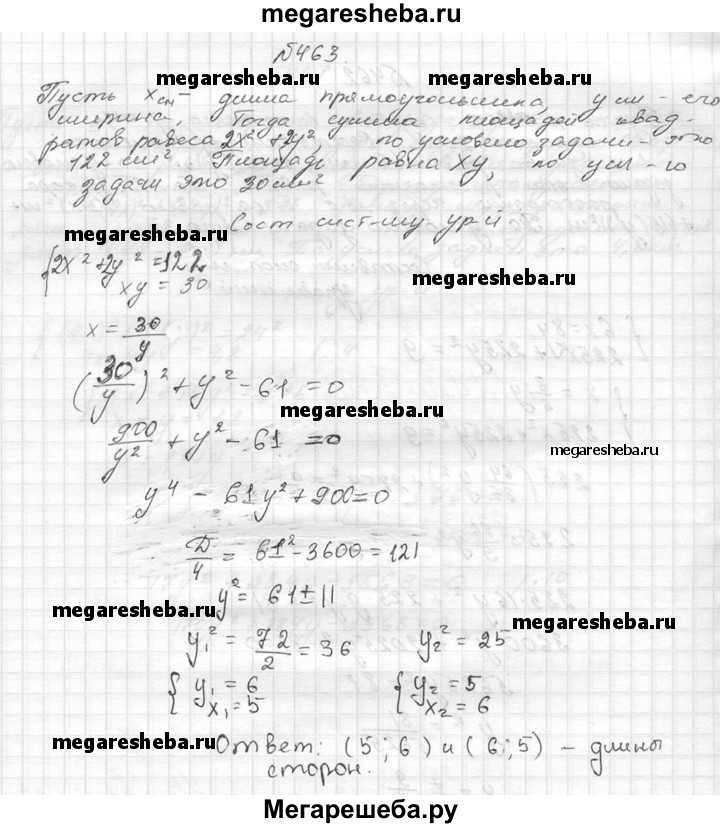 megaresheba.ru
№463.
megaresheba.ru megaresheba.ru
Пусть x см - длина прямоугольника, y см - его
ширина. Тогда сумма площадей квад-
ратов равеса 2x² + 2y², по условию задачи - это
122 см². Площадь равна xy, по усл-ю
задачи это 30 см²
Сост. сист-му ур-й
megaresheba.ru
{ 2x² + 2y² = 122
xy = 30
megaresheba.ru
x = 30/y
(30/y)² + y² - 61 = 0
megaresheba.ru
900/y² + y² - 61 = 0
megaresheba.ru
y⁴ - 61y² + 900 = 0
Д/4 = 61² - 3600 = 121
y² = 61 ± 11
megaresheba.ru megaresheba.ru
y₁² = 72/2 = 36 y₂² = 25
{ y₁ = 6 { y₂ = 5
x₁ = 5 x₂ = 6
megaresheba.ru
Ответ: (5; 6) и (6; 5) - длины
сторон.
megaresheba.ru
Мегарешеба.ру